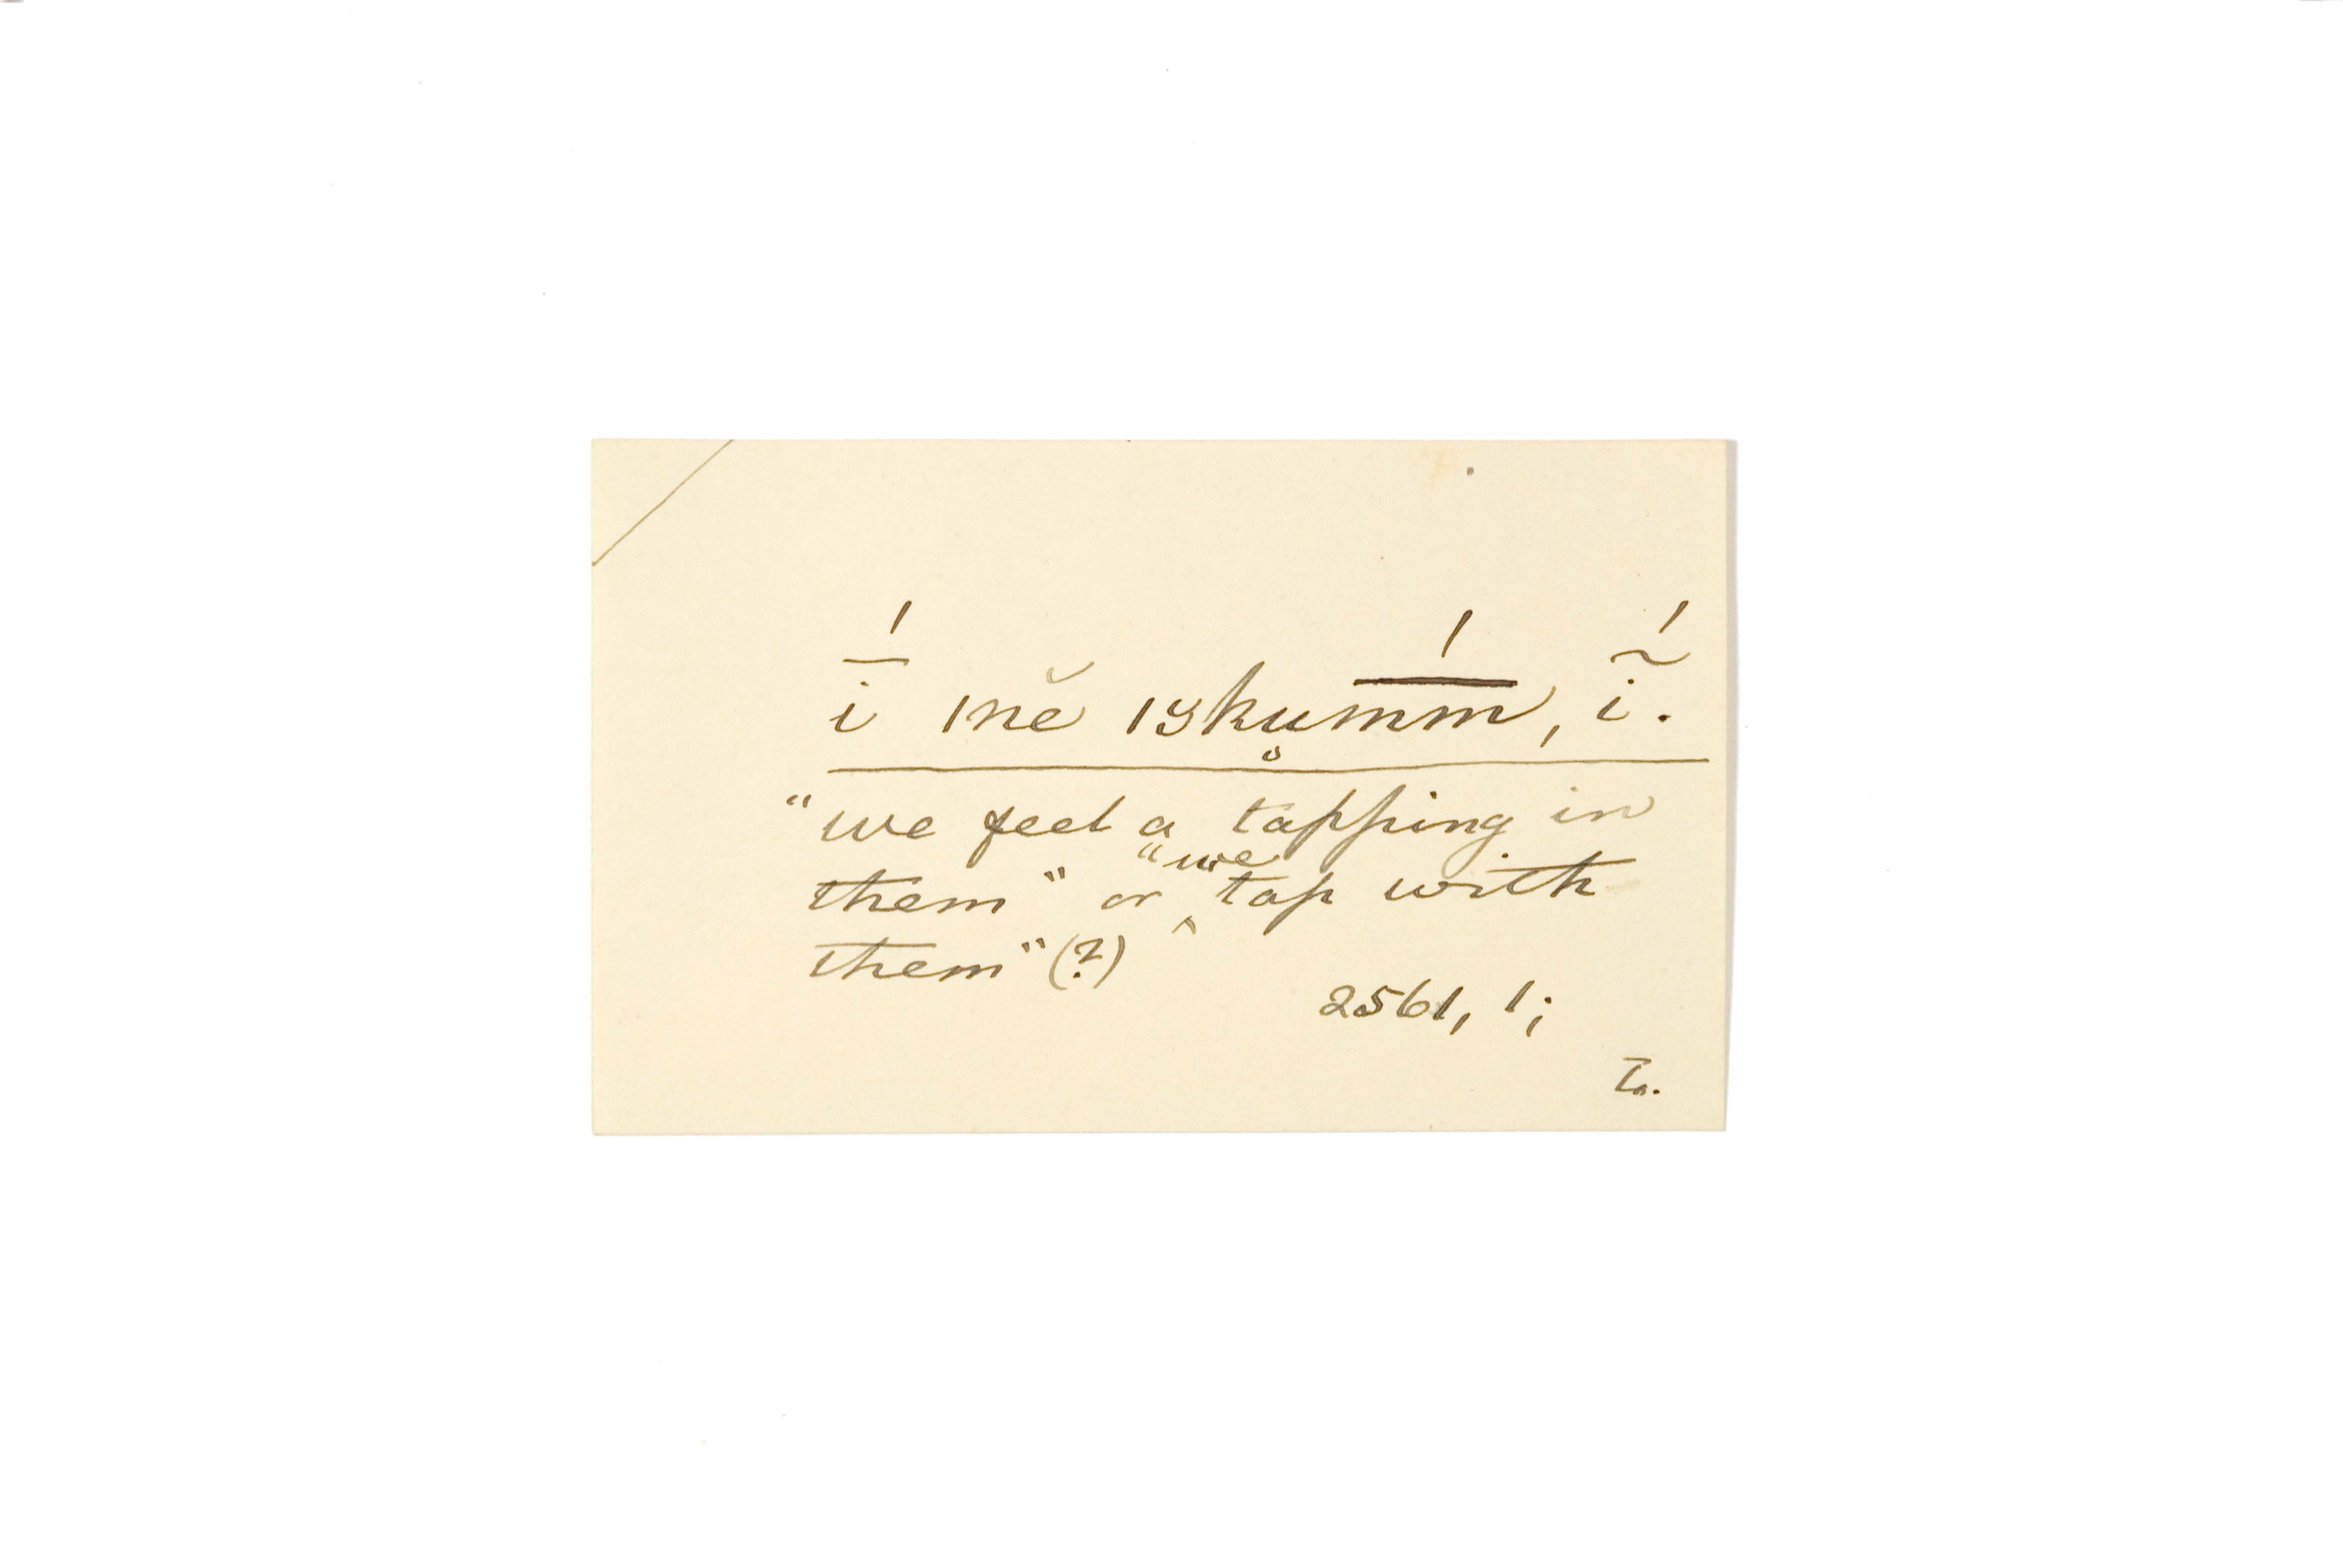 ī́ ǀnĕ ǀɜku̥m̄́m, ĩ́.
"we feel a tapping in
them" or "we tap with
them" (?)
2561, 1;